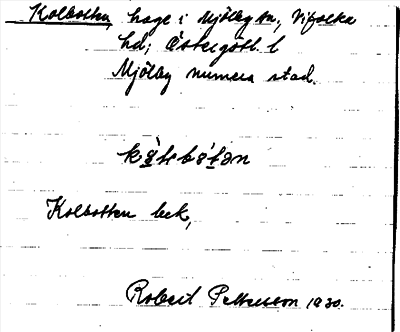 Kolbotten, hage i Mjölby sn, Vifolka
hd; Östergötl. l
Mjölby numera stad.
Kolbotten bek,
Robert Pettersson 1930.